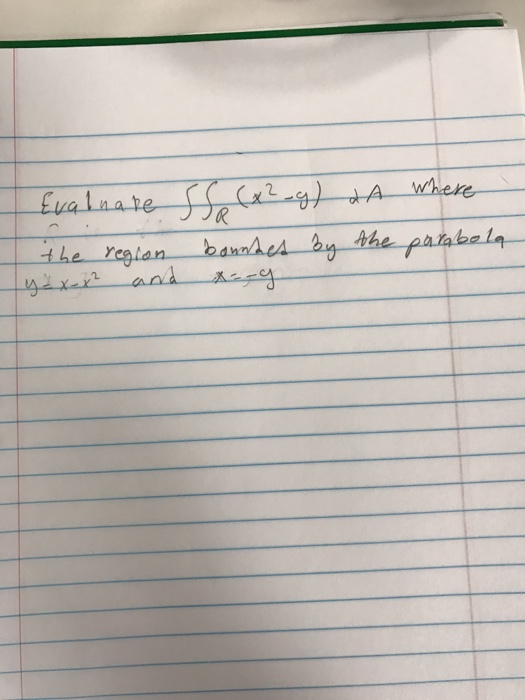 Evaluate ∫∫R (x² - y) dA where
the region bounded by the parabola
y = x - x² and x = -y